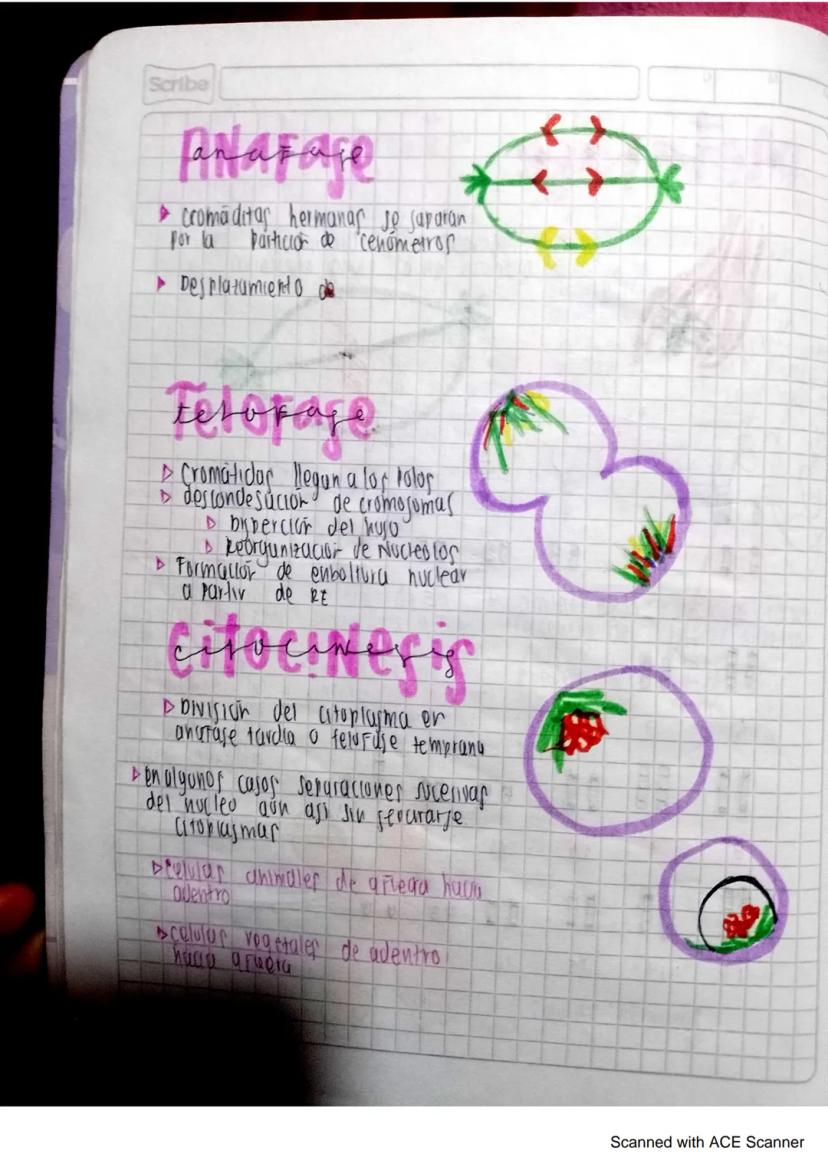 Scribe
Anafase
anafase
cromáditas hermanas se saparan
por la partició de cenómetros
Desplazamiento de
Telofase
telofase
Cromátidas llegan a los polos
descondesación de cromosomas
Disperción del huso
Reorganización de Nucleolos
Formación de enboltura nuclear
a partir de RE
Citocinesis
citocinesis
División del citoplasma en
anafase tardía o telofase temprana
en algunos casos separaciones sucesivas
del nucleo aún así sin separarse
citoplasmas
celulas animales de afuera hacia
adentro
celulas vegetales de adentro
hacia afuera
Scanned with ACE Scanner